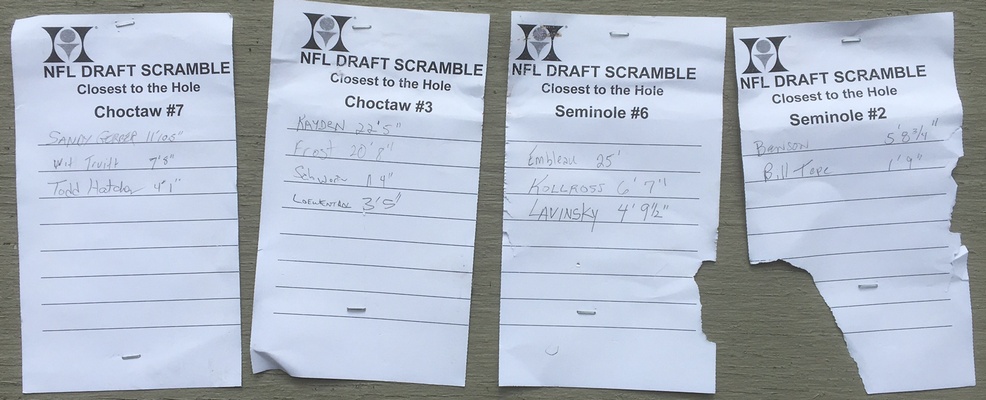 NFL DRAFT SCRAMBLE
Closest to the Hole
Choctaw #7
SANDY
7'8"
Todd 4'1"
NFL DRAFT SCRAMBLE
Closest to the Hole
Choctaw #3
KAYDEN 22'5"
Frost 20'8"
4"
LOEWENTHAL 3'5"
NFL DRAFT SCRAMBLE
Closest to the Hole
Seminole #6
Embleau 25'
KOLLROSS 6'7"
LAVINSKY 4'9½"
NFL DRAFT SCRAMBLE
Closest to the Hole
Seminole #2
5'8¾"
Bill Tope 1'9"